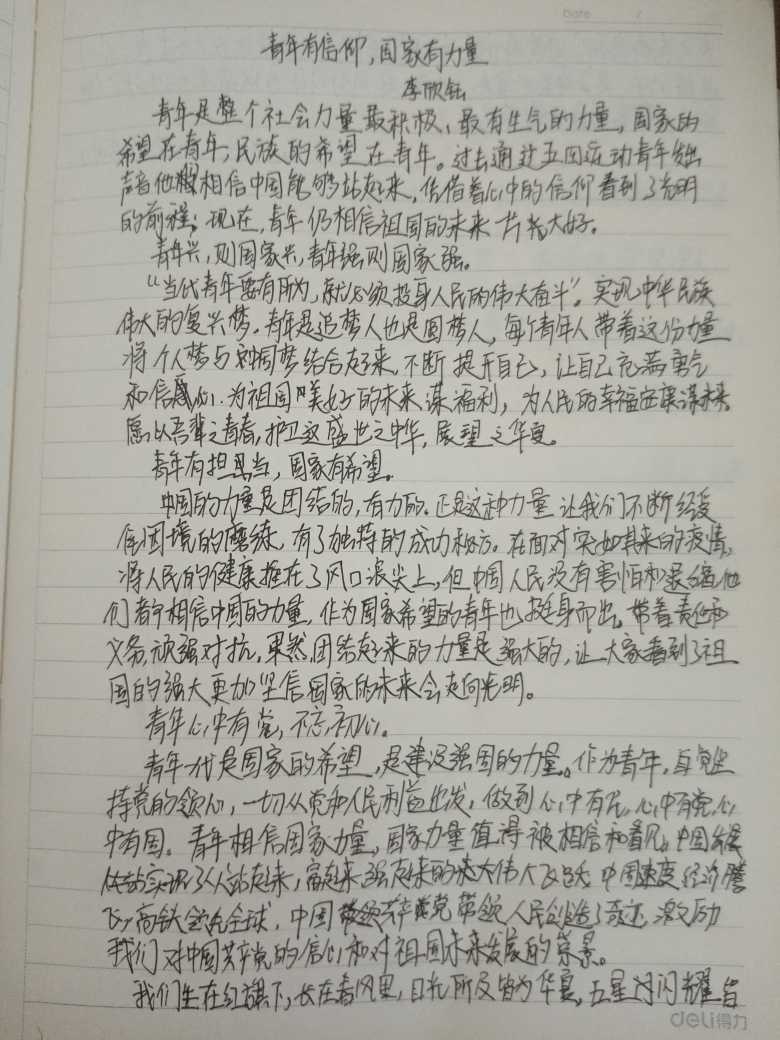 Date /
青年有信仰,国家有力量
李欣钰
青年是整个社会力量最积极、最有生气的力量,国家的
希望在青年,民族的希望在青年。过去通过五四运动青年发出
声音他们相信中国能够站起来,凭借着心中的信仰看到了光明
的前程;现在,青年仍相信祖国的未来一片光大好。
青年兴,则国家兴,青年强则国家强。
“当代青年要有所为,就必须投身人民的伟大奋斗”。实现中华民族
伟大的复兴梦。青年是追梦人也是圆梦人,每个青年人带着这份力量
将个人梦与中国梦结合起来,不断提升自己,让自己充满勇气
和信心.为祖国美好的未来谋福利,为人民的幸福谋未来
愿以吾辈之青春,护卫这盛世之中华,展望之华夏。
青年有担当,国家有希望。
中国的力量是团结的,有力的.正是这种力量让我们不断经受
住困境的磨练,有了独特的成功秘方。在面对突如其来的疫情,
将人民的健康推在了风口浪尖上,但中国人民没有害怕和退缩他
们都相信中国的力量,作为国家希望的青年也挺身而出。带着责任和
义务,顽强对抗,果然,团结起来的力量是强大的,让大家看到了祖
国的强大更加坚信国家的未来会走向光明。
青年心中有党,不忘初心。
青年一代是国家的希望,是建设强国的力量。作为青年,坚
持党的领心,一切从党和人民利益出发,做到心中有民,心中有党,心
中有国。青年相信国家力量,国家力量值得被相信和看见。中国
实现了从站起来,富起来强起来的伟大飞跃.中国速度经济腾
飞,高铁领先全球,中国共产党带领人民创造了奇迹,激励
我们对中国共产党的信心和对祖国未来发展的荣景。
我们生在红旗下,长在春风里,目光所及皆为华夏,五星闪耀皆
deli得力